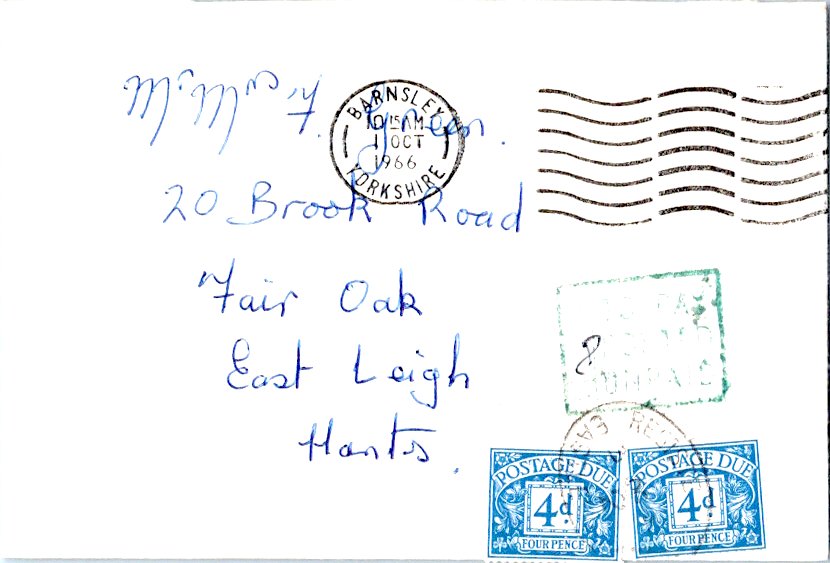 Mr. Mrs F. Green.
20 Brook Road
Fair Oak
East Leigh
Hants.
BARNSLEY
10 15 AM
1 OCT
1966
YORKSHIRE
TO PAY
8
UNPAID
POSTAGE DUE
4d.
FOUR PENCE
POSTAGE DUE
4d.
FOUR PENCE